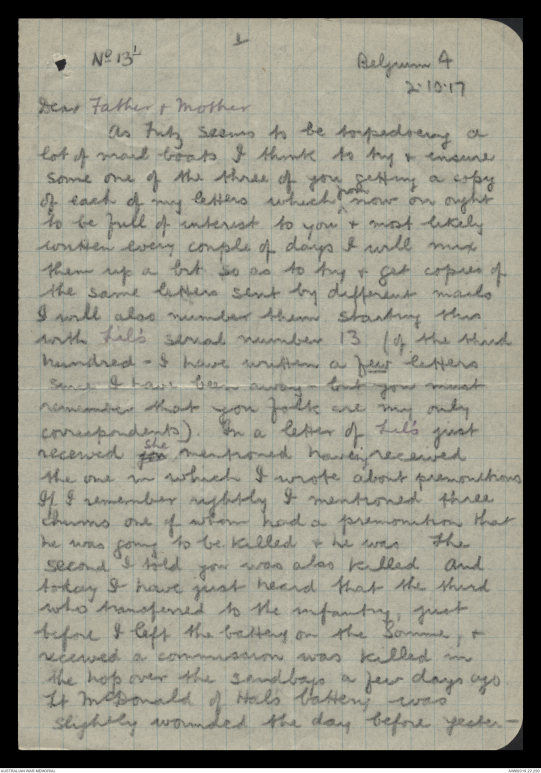 1
No 13L Belgium 4
2.10.17
Dear Father & Mother
As Fritz seems to be torpedoeing a
lot of mail boats I think to try & ensure
some one of the three of you getting a copy
of each of my letters which from now on ought
to be full of interest to you & most likely
written every couple of days I will mix
them up a bit so as to try & get copies of
the same letters sent by different mails
I will also number them starting this
with Lil's serial number 13 (of the third
hundred - I have written a few letters
since I have been away - but you must
remember that you folk are my only
correspondents). In a letter of Lil's just
received you she mentioned having received
the one in which I wrote about premonitions
If I remember rightly I mentioned three
chums one of whom had a premonition that
he was going to be killed & he was The
second I told you was also killed And
today I have just heard that the third
who transferred to the infantry, just
before I left the battery on the Somme, &
received a commission was killed in
the hop over the sandbags a few days ago
Lt McDonald of Hal's battery was
slightly wounded the day before yester-
AUSTRALIAN WAR MEMORIAL